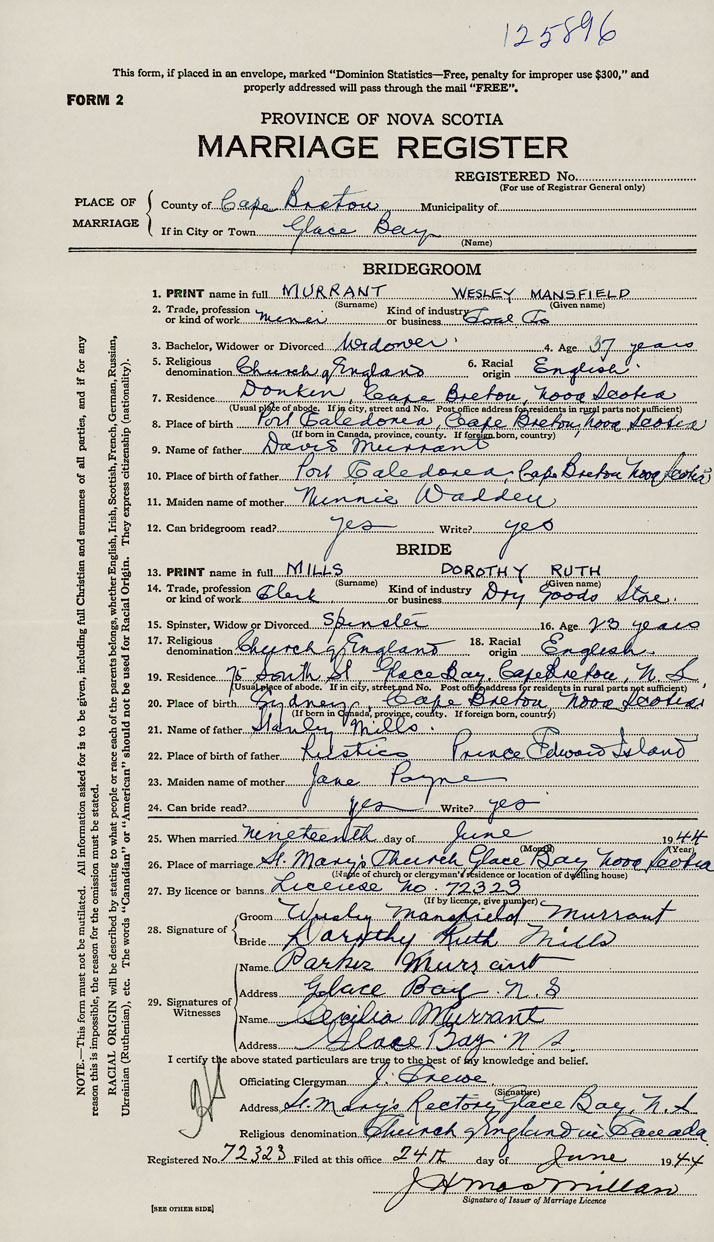 125896
This form, if placed in an envelope, marked "Dominion Statistics—Free, penalty for improper use $300," and
properly addressed will pass through the mail "FREE".
FORM 2
PROVINCE OF NOVA SCOTIA
MARRIAGE REGISTER
REGISTERED No.
(For use of Registrar General only)
PLACE OF MARRIAGE
County of Cape Breton Municipality of
If in City or Town Glace Bay
(Name)
BRIDEGROOM
1. PRINT name in full MURRANT WESLEY MANSFIELD
(Surname) (Given name)
2. Trade, profession or kind of work miner Kind of industry or business Coal Co
3. Bachelor, Widower or Divorced Widower 4. Age 37 years
5. Religious denomination Church of England 6. Racial origin English
7. Residence Donkin, Cape Breton, Nova Scotia
(Usual place of abode. If in city, street and No. Post office address for residents in rural parts not sufficient)
8. Place of birth Port Caledonia, Cape Breton, Nova Scotia
(If born in Canada, province, county. If foreign born, country)
9. Name of father Davis Murrant
10. Place of birth of father Port Caledonia, Cape Breton Nova Scotia
11. Maiden name of mother Minnie Wadden
12. Can bridegroom read? yes Write? yes
BRIDE
13. PRINT name in full MILLS DOROTHY RUTH
(Surname) (Given name)
14. Trade, profession or kind of work Clerk Kind of industry or business Dry Goods Store.
15. Spinster, Widow or Divorced Spinster 16. Age 23 years
17. Religious denomination Church of England 18. Racial origin English.
19. Residence 75 South St Glace Bay, Cape Breton, N. S.
(Usual place of abode. If in city, street and No. Post office address for residents in rural parts not sufficient)
20. Place of birth Sydney, Cape Breton, Nova Scotia
(If born in Canada, province, county. If foreign born, country)
21. Name of father Stanley Mills.
22. Place of birth of father Rustico Prince Edward Island
23. Maiden name of mother Jane Payne
24. Can bride read? yes Write? yes
25. When married nineteenth day of June 1944
(Month) (Year)
26. Place of marriage St. Mary's Church Glace Bay Nova Scotia
(Name of church or clergyman's residence or location of dwelling house)
27. By licence or banns License No. 72323
(If by licence, give number)
28. Signature of
Groom Wesley Mansfield Murrant
Bride Dorothy Ruth Mills
29. Signatures of Witnesses
Name Parker Murrant
Address Glace Bay N. S
Name Cecilia Murrant
Address Glace Bay N S
I certify the above stated particulars are true to the best of my knowledge and belief.
Officiating Clergyman J. Trewe
(Signature)
Address St. Mary's Rectory, Glace Bay, N. S
Religious denomination Church of England in Canada
Registered No. 72323 Filed at this office 24th day of June 1944
J H MacMillan
Signature of Issuer of Marriage Licence
[SEE OTHER SIDE]
NOTE.—This form must not be mutilated. All information asked for is to be given, including full Christian and surnames of all parties, and if for any
reason this is impossible, the reason for the omission must be stated.
RACIAL ORIGIN will be described by stating to what people or race each of the parents belongs, whether English, Irish, Scottish, French, German, Russian,
Ukrainian (Ruthenian), etc. The words "Canadian" or "American" should not be used for Racial Origin. They express citizenship (nationality).